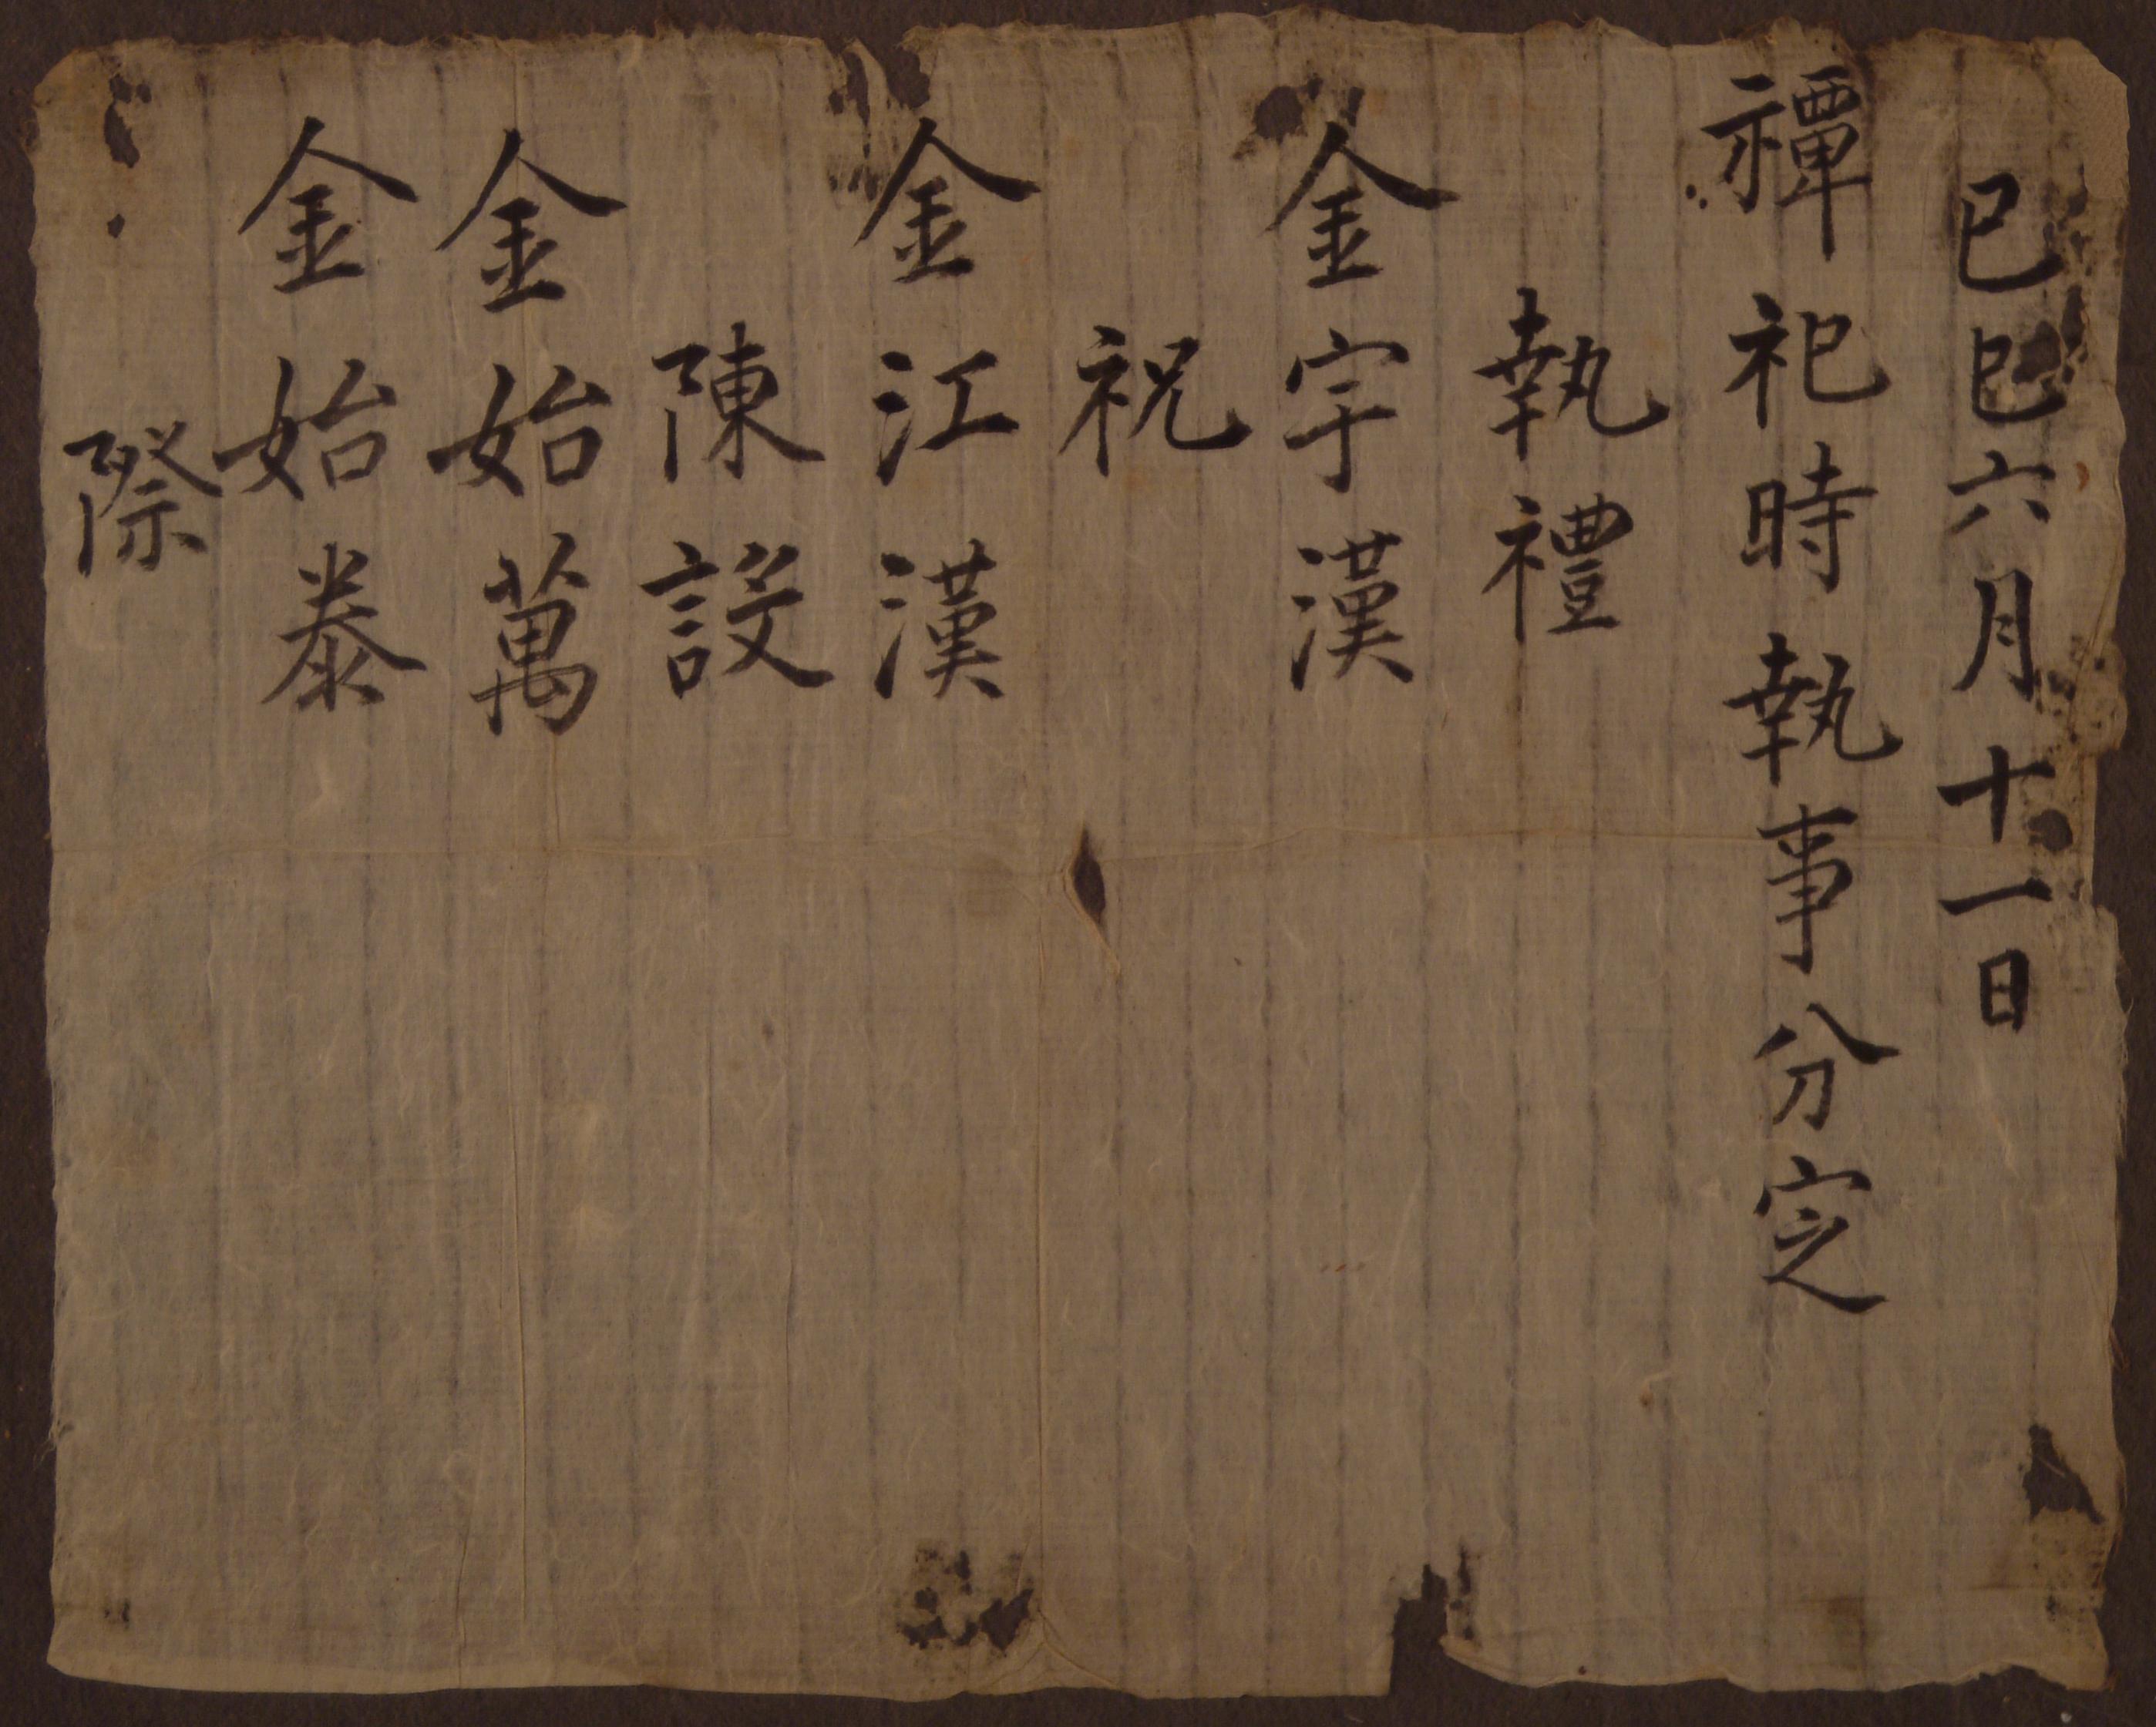 己巳六月十一日
禫祀時執事分定
執禮
金宇漢
祝
金江漢
陳設
金始萬
金始泰
際